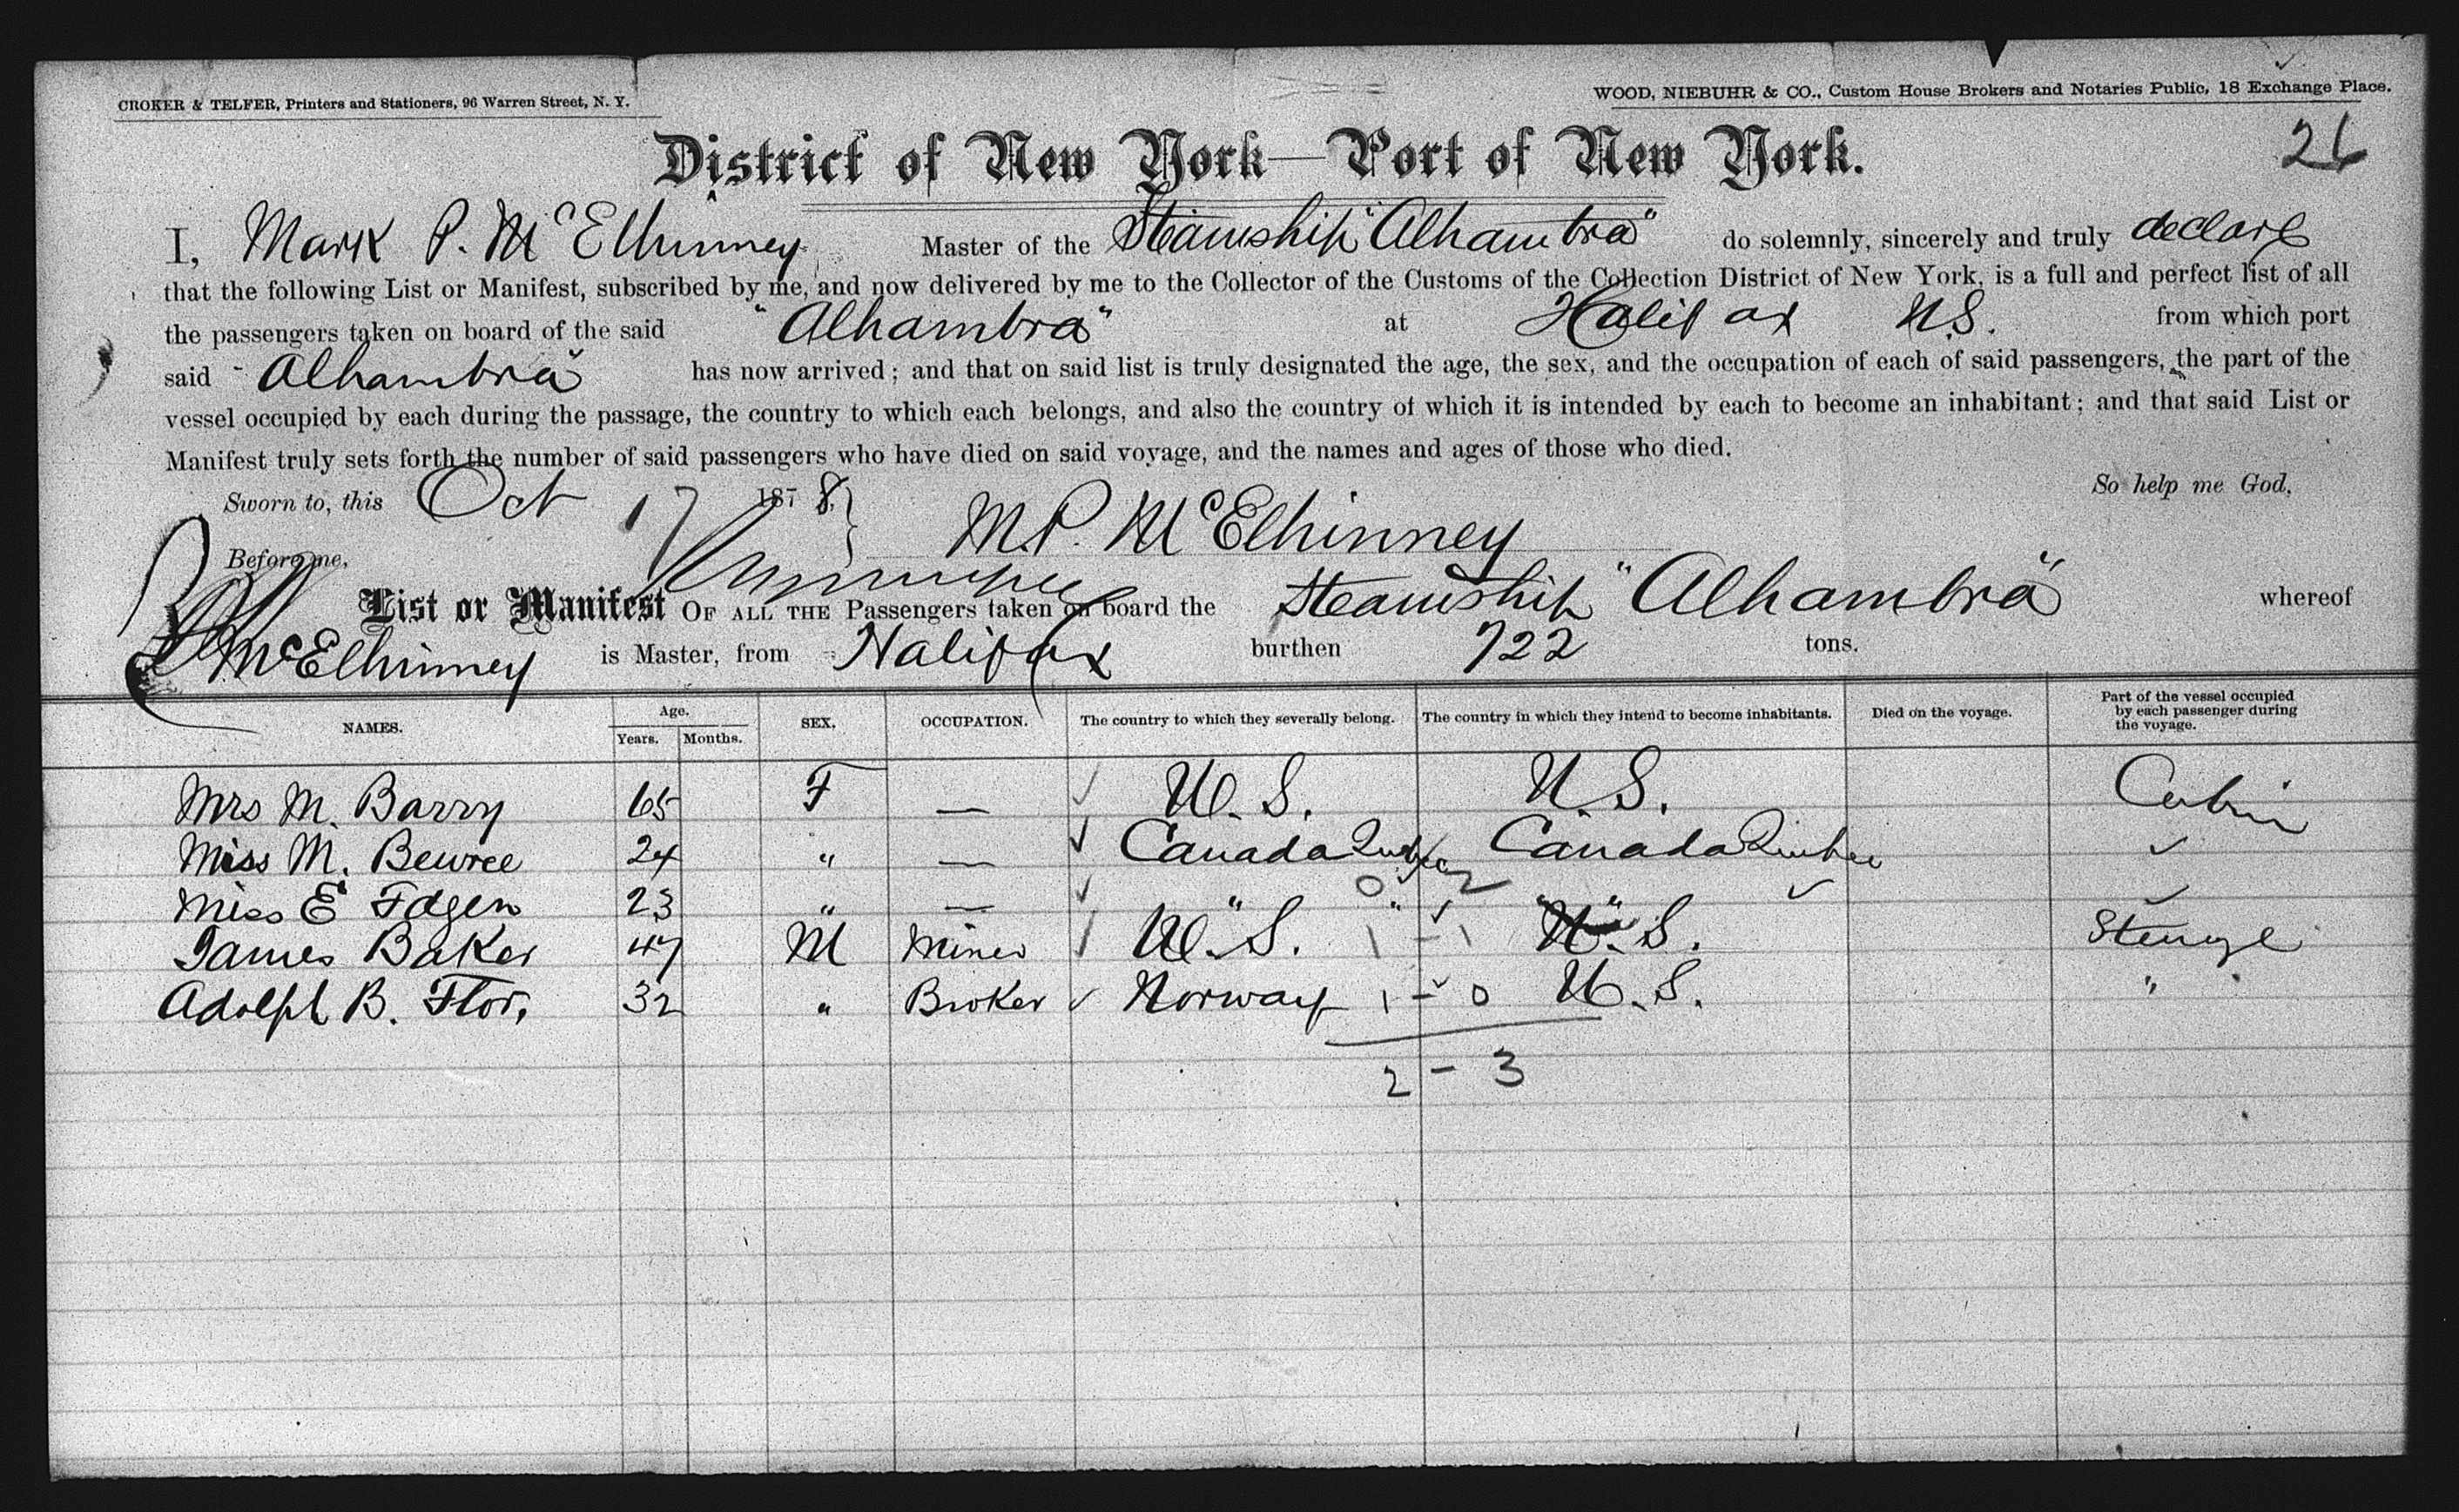 CROKER & TELFER, Printers and Stationers, 96 Warren Street, N. Y.
WOOD, NIEBUHR & CO., Custom House Brokers and Notaries Public, 18 Exchange Place.
26
District of New York—Port of New York.
I, Mark P. McElhinney Master of the Steamship "Alhambra" do solemnly, sincerely and truly declare
that the following List or Manifest, subscribed by me, and now delivered by me to the Collector of the Customs of the Collection District of New York, is a full and perfect list of all
the passengers taken on board of the said "Alhambra" at Halifax N.S. from which port
said "Alhambra" has now arrived; and that on said list is truly designated the age, the sex, and the occupation of each of said passengers, the part of the
vessel occupied by each during the passage, the country to which each belongs, and also the country of which it is intended by each to become an inhabitant; and that said List or
Manifest truly sets forth the number of said passengers who have died on said voyage, and the names and ages of those who died.
So help me God,
Sworn to, this Oct 17 1878.
M.P. McElhinney
Before me,
List or Manifest OF ALL THE Passengers taken on board the Steamship "Alhambra" whereof
McElhinney is Master, from Halifax burthen 722 tons.
NAMES. Age. Years. Months. SEX. OCCUPATION. The country to which they severally belong. The country in which they intend to become inhabitants. Died on the voyage. Part of the vessel occupied by each passenger during the voyage.
Mrs M. Barry 65 F — U.S. U.S. Cabin
Miss M. Bewree 24 " — Canada Quebec Canada Quebec ✓
Miss E Edgen 23 " — " " 0 2 " ✓
James Baker 47 M Miner U.S. 1 - 1 U.S. Steerage
Adolph B. Flor, 32 " Broker Norway 1 - 0 U.S. "
2 - 3